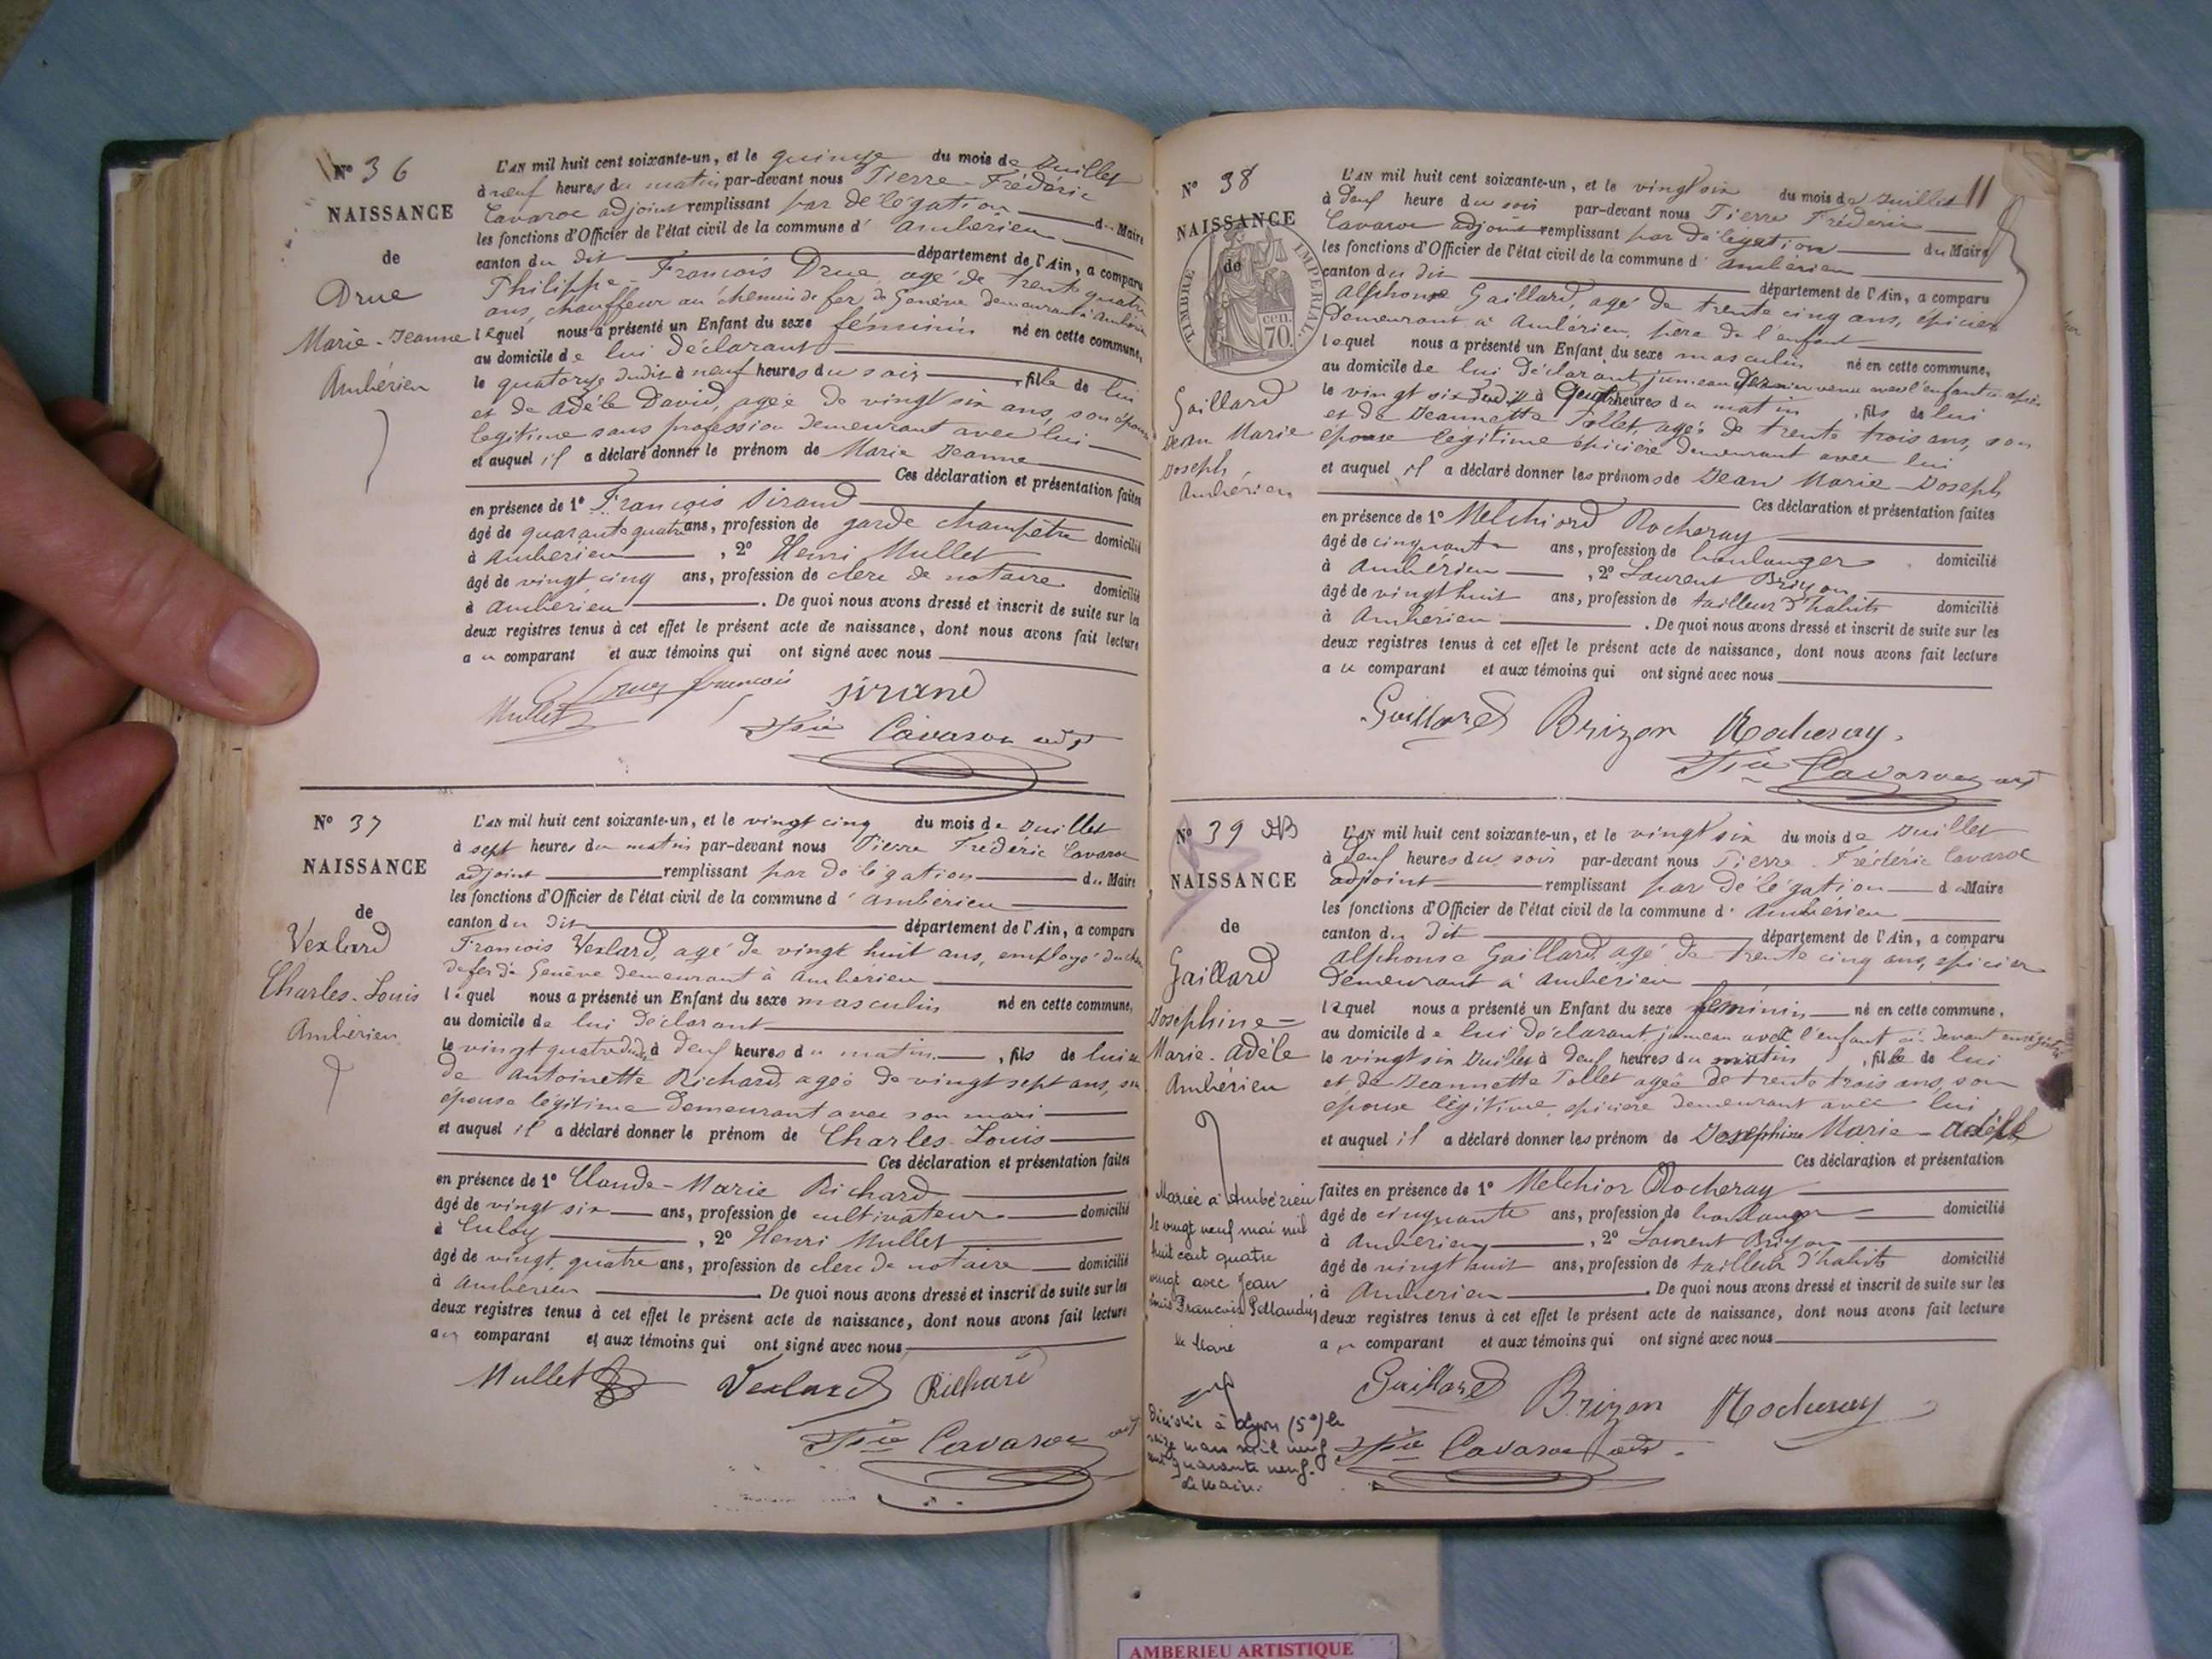 N° 36
NAISSANCE
de
Drue
Marie-Jeanne
Ambérieu
L'AN mil huit cent soixante-un, et le quinze du mois de Juillet
à neuf heures du matin par-devant nous Pierre-Frédéric
Cavaroc adjoint remplissant par délégation du Maire
les fonctions d'Officier de l'état civil de la commune d'Ambérieu
canton du dit département de l'Ain, a comparu
Philippe-François Drue, agé de trente quatre
ans, chauffeur au chemin de fer de Genève demeurant à Ambérieu
lequel nous a présenté un Enfant du sexe féminin né en cette commune,
au domicile de lui déclarant
le quatorze dudit à neuf heures du soir, fille de lui
et de Adèle David, agée de vingt six ans, son épouse
legitime sans profession demeurant avec lui
et auquel il a déclaré donner le prénom de Marie Jeanne
Ces déclaration et présentation faites
en présence de 1° François Sirand
âgé de quarante quatre ans, profession de garde champêtre domicilié
à Ambérieu, 2° Henri Mullet
âgé de vingt cinq ans, profession de clerc de notaire domicilié
à Ambérieu. De quoi nous avons dressé et inscrit de suite sur les
deux registres tenus à cet effet le présent acte de naissance, dont nous avons fait lecture
au comparant et aux témoins qui ont signé avec nous
françois Sirand
Mullet
Cavaroc adj
N° 37
NAISSANCE
de
Vexlard
Charles-Louis
Ambérieu
L'AN mil huit cent soixante-un, et le vingt cinq du mois de Juillet
à sept heures du matin par-devant nous Pierre Frédéric Cavaroc
adjoint remplissant par délégation du Maire
les fonctions d'Officier de l'état civil de la commune d'Ambérieu
canton du dit département de l'Ain, a comparu
François Vexlard, agé de vingt huit ans, employé du chemin
de fer de Genève demeurant à Ambérieu
lequel nous a présenté un Enfant du sexe masculin né en cette commune,
au domicile de lui déclarant
le vingt quatre dudit à deux heures du matin, fils de lui et
de Antoinette Richard, agée de vingt sept ans, son
épouse légitime demeurant avec son mari
et auquel il a déclaré donner le prénom de Charles-Louis
Ces déclaration et présentation faites
en présence de 1° Claude-Marie Richard
âgé de vingt six ans, profession de cultivateur domicilié
à Culoz, 2° Henri Mullet
âgé de vingt quatre ans, profession de clerc de notaire domicilié
à Ambérieu. De quoi nous avons dressé et inscrit de suite sur les
deux registres tenus à cet effet le présent acte de naissance, dont nous avons fait lecture
au comparant et aux témoins qui ont signé avec nous
Mullet Vexlard Richard
Cavaroc adj
11
N° 38
NAISSANCE
de
TIMBRE IMPERIAL
70 cen.
Gaillard
Jean Marie
Joseph
Ambérieu
L'AN mil huit cent soixante-un, et le vingt six du mois de Juillet
à deux heure du soir par-devant nous Pierre Frédéric
Cavaroc adjoint remplissant par délégation du Maire
les fonctions d'Officier de l'état civil de la commune d'Ambérieu
canton du dit département de l'Ain, a comparu
Alphonse Gaillard, agé de trente cinq ans, épicier
demeurant à Ambérieu, père de l'enfant
lequel nous a présenté un Enfant du sexe masculin né en cette commune,
au domicile de lui déclarant, jumeau venu avec l'enfant ci après
le vingt six dudit à heures du matin, fils de lui
et de Jeannette Tollet, agée de trente trois ans, son
épouse légitime épicière demeurant avec lui
et auquel il a déclaré donner les prénoms de Jean Marie-Joseph
Ces déclaration et présentation faites
en présence de 1° Melchiord Rocheray
âgé de cinquante ans, profession de boulanger domicilié
à Ambérieu, 2° Laurent Brizon
âgé de vingt huit ans, profession de tailleur d'habits domicilié
à Ambérieu. De quoi nous avons dressé et inscrit de suite sur les
deux registres tenus à cet effet le présent acte de naissance, dont nous avons fait lecture
au comparant et aux témoins qui ont signé avec nous
Gaillard Brizon Rocheray
Cavaroc adj
N° 39
NAISSANCE
de
Gaillard
Josephine-
Marie-Adèle
Ambérieu
Mariée à Ambérieu
le vingt neuf mai mil
huit cent quatre
vingt avec Jean
Louis François Pellaudin
le Maire
Décédée à Lyon (5e) le
seize mars mil neuf
cent quarante neuf.
Le Maire.
L'AN mil huit cent soixante-un, et le vingt six du mois de Juillet
à deux heures du soir par-devant nous Pierre-Frédéric Cavaroc
adjoint remplissant par délégation du Maire
les fonctions d'Officier de l'état civil de la commune d'Ambérieu
canton du dit département de l'Ain, a comparu
Alphonse Gaillard, agé de trente cinq ans, épicier
demeurant à Ambérieu
lequel nous a présenté un Enfant du sexe féminin né en cette commune,
au domicile de lui déclarant, jumeau avec l'enfant ci-devant enregistré
le vingt six Juillet à deux heures du matin, fille de lui
et de Jeannette Tollet agée de trente trois ans, son
épouse légitime, épicière demeurant avec lui
et auquel il a déclaré donner les prénom de Josephine Marie-Adèle
Ces déclaration et présentation
faites en présence de 1° Melchior Rocheray
âgé de cinquante ans, profession de boulanger domicilié
à Ambérieu, 2° Laurent Brizon
âgé de vingt huit ans, profession de tailleur d'habits domicilié
à Ambérieu. De quoi nous avons dressé et inscrit de suite sur les
deux registres tenus à cet effet le présent acte de naissance, dont nous avons fait lecture
au comparant et aux témoins qui ont signé avec nous
Gaillard Brizon Rocheray
Cavaroc adj.
AMBERIEU ARTISTIQUE